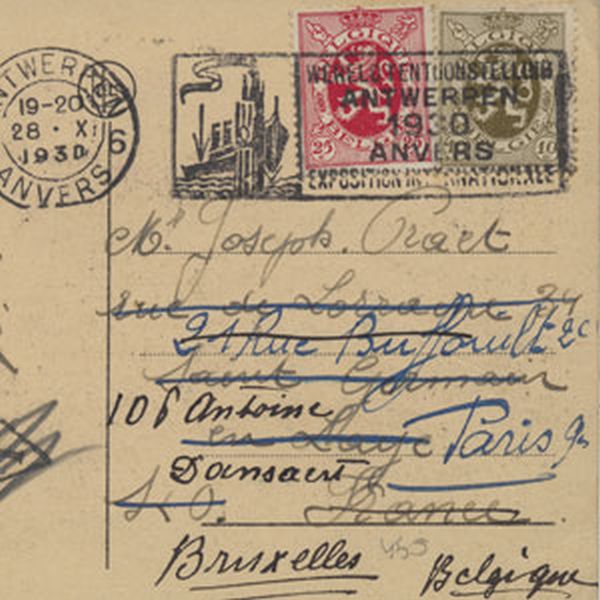 ANTWERPEN
19-20
28 · XI
1930
ANVERS
6
BELGIQUE
BELGIE
25
10
WERELDTENTOONSTELLING
ANTWERPEN
1930
ANVERS
EXPOSITION INTERNATIONALE
Mr Joseph
rue de Lorraine 24
21 Rue Buffault
Saint Germain
106 Antoine
en Laye Paris 9e
Dansaert
S & O. France
Bruxelles Belgique